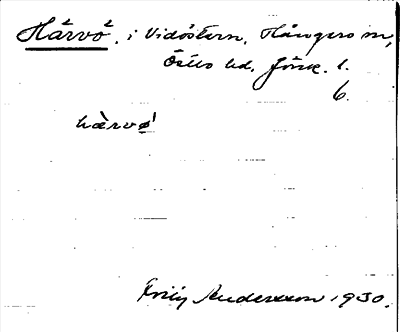 Hårvö. i Vidöstern. Hångers sn,
Östbo hd. Jönk. l.
6.
hàrvø̀
Frity Andersson 1930.